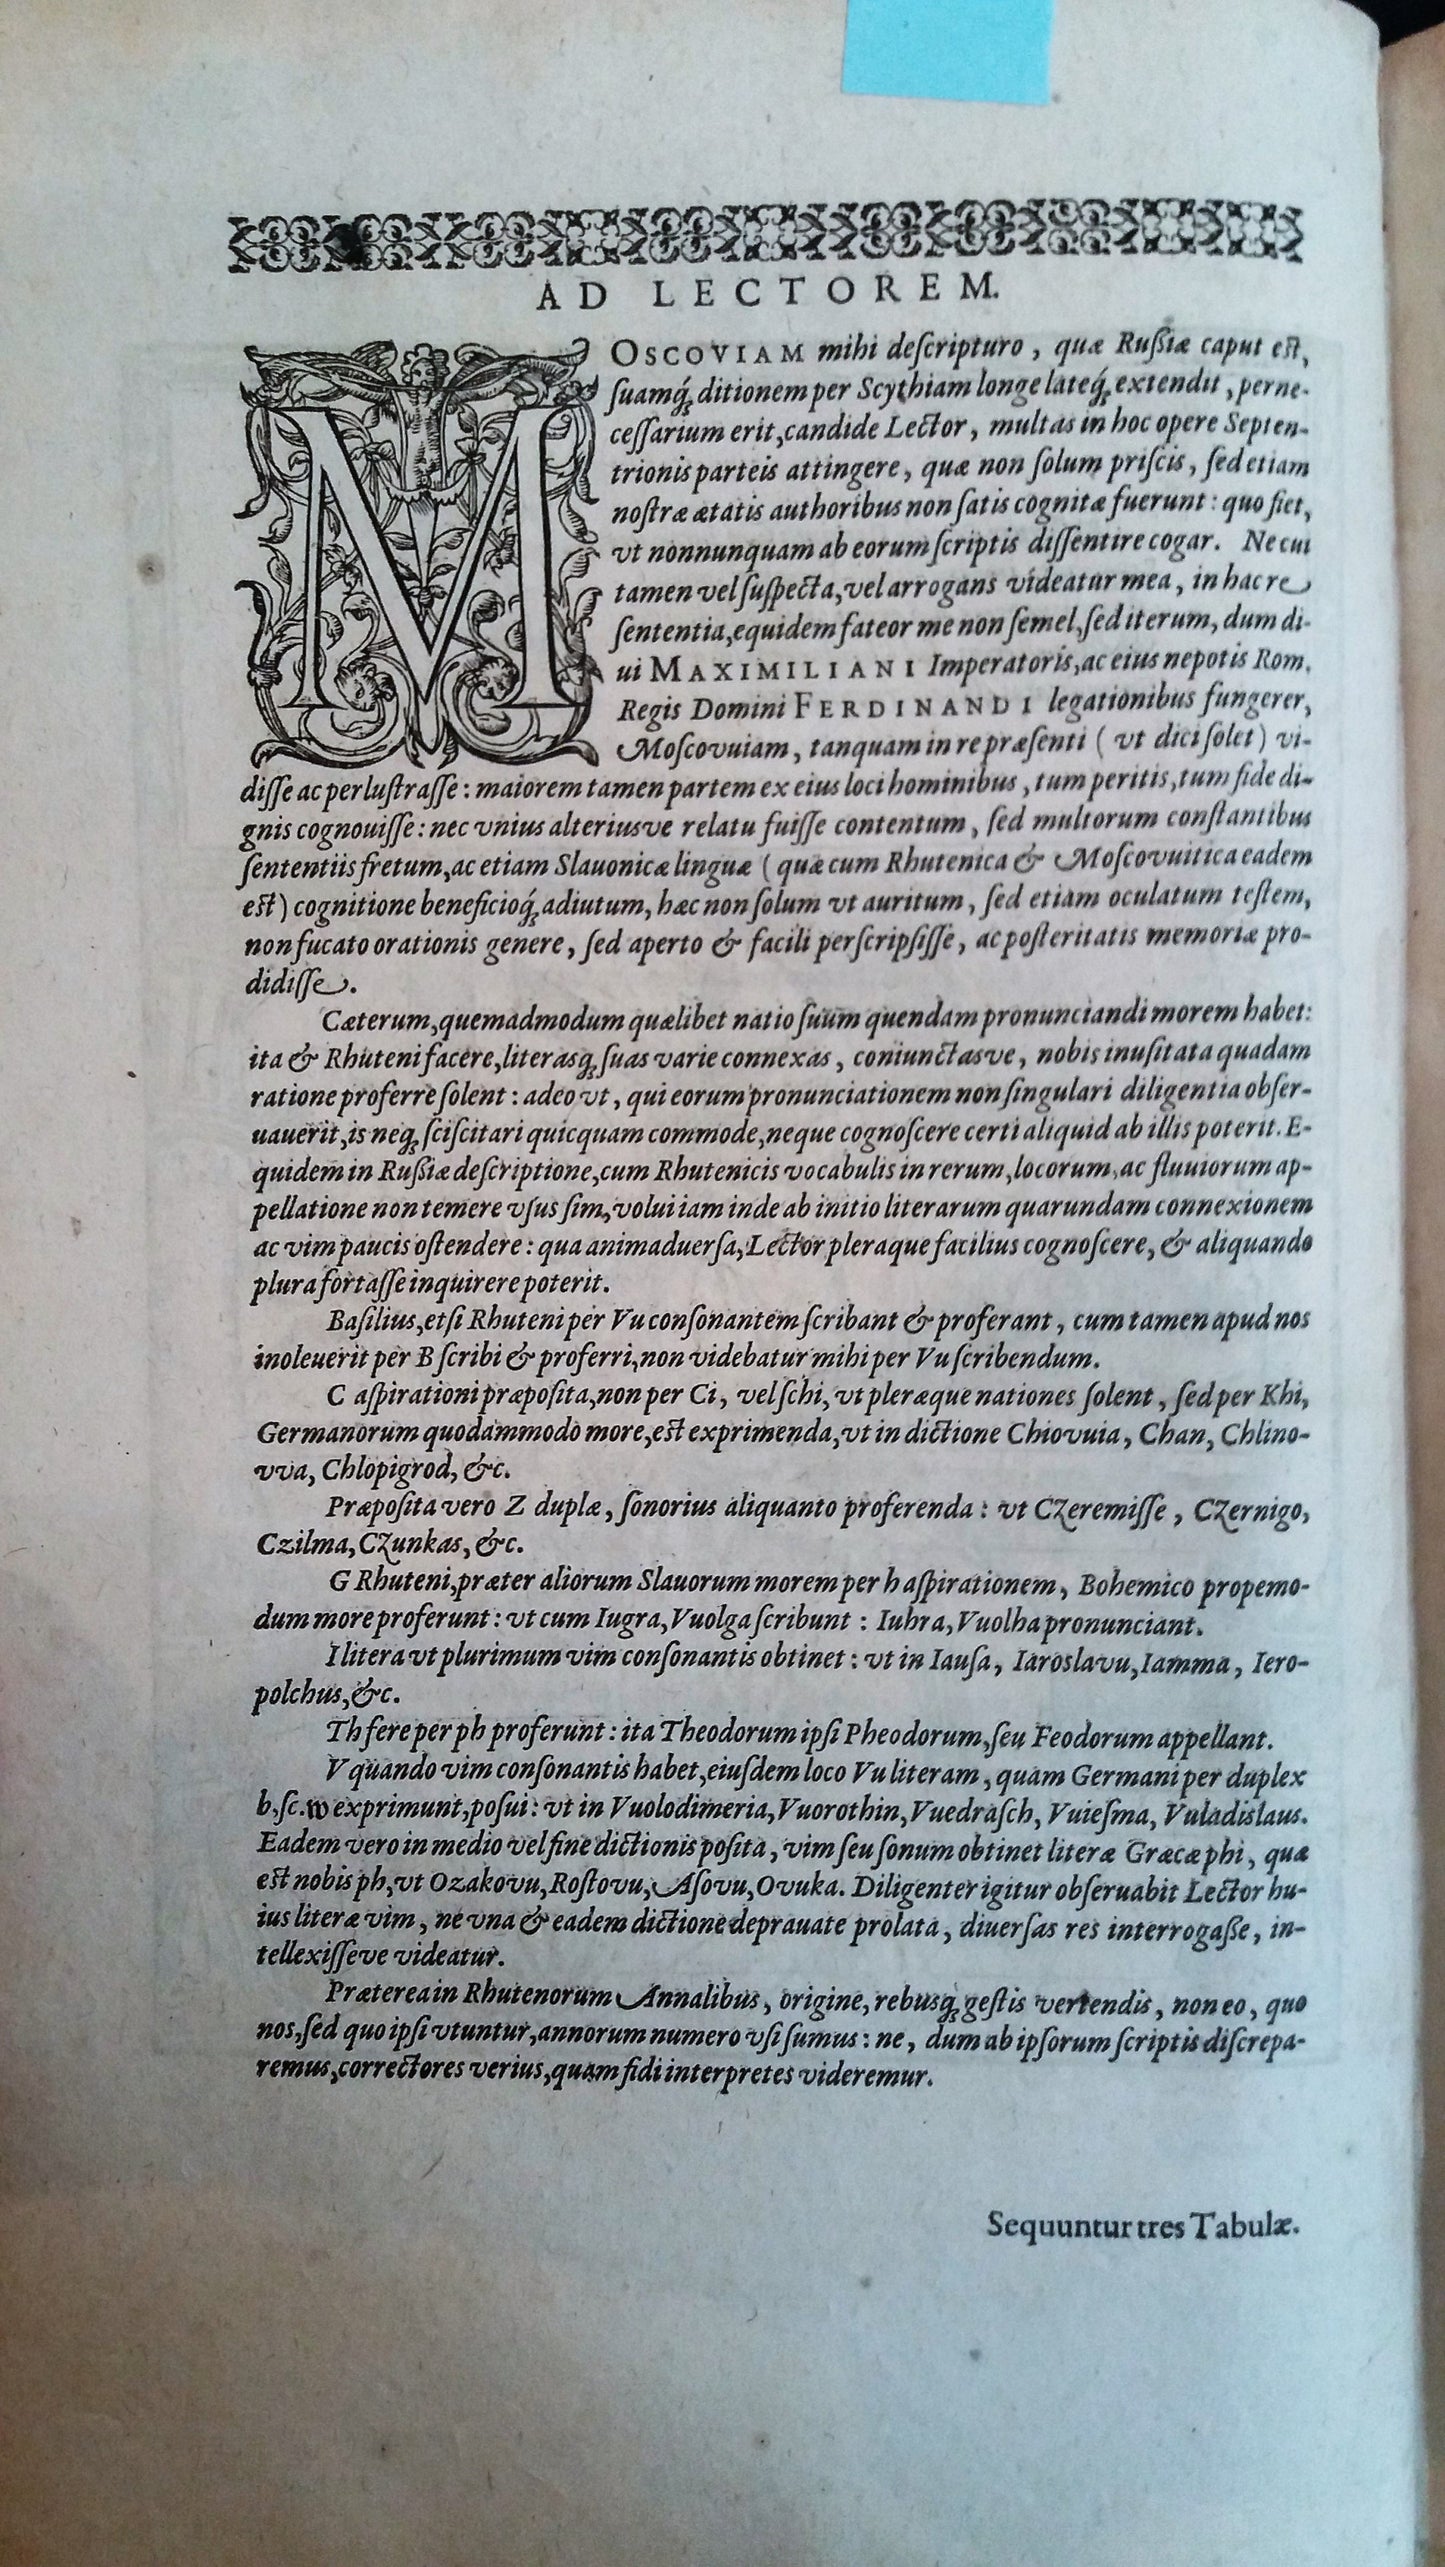 AD LECTOREM.
MOSCOVIAM mihi deſcripturo, quæ Rußiæ caput est,
ſuamq́ꝫ ditionem per Scythiam longe lateq́ꝫ extendit, perne-
ceſſarium erit, candide Lector, multas in hoc opere Septen-
trionis parteis attingere, quæ non ſolum priſcis, ſed etiam
noſtræ ætatis authoribus non ſatis cognitæ fuerunt: quo fiet,
vt nonnunquam ab eorum ſcriptis diſſentire cogar. Ne cui
tamen vel ſuſpecta, vel arrogans videatur mea, in hac re
ſententia, equidem fateor me non ſemel, ſed iterum, dum di-
ui MAXIMILIANI Imperatoris, ac eius nepotis Rom.
Regis Domini FERDINANDI legationibus fungerer,
Moſcovuiam, tanquam in re præſenti (vt dici ſolet) vi-
diſſe ac perluſtraſſe: maiorem tamen partem ex eius loci hominibus, tum peritis, tum fide di-
gnis cognouiſſe: nec vnius alteriusve relatu fuiſſe contentum, ſed multorum conſtantibus
ſententiis fretum, ac etiam Slauonicæ linguæ (quæ cum Rhutenica & Moſcovuitica eadem
est) cognitione beneficioq́ꝫ adiutum, hæc non ſolum vt auritum, ſed etiam oculatum teſtem,
non fucato orationis genere, ſed aperto & facili perſcripſiſſe, ac poſteritatis memoriæ pro-
didiſſe.
Cæterum, quemadmodum quælibet natio ſuum quendam pronunciandi morem habet:
ita & Rhuteni facere, literasqꝫ ſuas varie connexas, coniunctasve, nobis inuſitata quadam
ratione proferre ſolent: adeo vt, qui eorum pronunciationem non ſingulari diligentia obſer-
uauerit, is neqꝫ ſciſcitari quicquam commode, neque cognoſcere certi aliquid ab illis poterit. E-
quidem in Rußiæ deſcriptione, cum Rhutenicis vocabulis in rerum, locorum, ac fluuiorum ap-
pellatione non temere vſus ſim, volui iam inde ab initio literarum quarundam connexionem
ac vim paucis oſtendere: qua animaduerſa, Lector pleraque facilius cognoſcere, & aliquando
plura fortaſſe inquirere poterit.
Baſilius, etſi Rhuteni per Vu conſonantem ſcribant & proferant, cum tamen apud nos
inoleuerit per B ſcribi & proferri, non videbatur mihi per Vu ſcribendum.
C aſpirationi præpoſita, non per Ci, vel ſchi, vt pleræque nationes ſolent, ſed per Khi,
Germanorum quodammodo more, est exprimenda, vt in dictione Chiovuia, Chan, Chlino-
vva, Chlopigrod, &c.
Præpoſita vero Z duplæ, ſonorius aliquanto proferenda: vt Czeremiſſe, Czernigo,
Czilma, Czunkas, &c.
G Rhuteni, præter aliorum Slauorum morem per h aſpirationem, Bohemico propemo-
dum more proferunt: vt cum Iugra, Vuolga ſcribunt: Iuhra, Vuolha pronunciant.
I litera vt plurimum vim conſonantis obtinet: vt in Iauſa, Iaroslavu, Iamma, Iero-
polchus, &c.
Th fere per ph proferunt: ita Theodorum ipſi Pheodorum, ſeu Feodorum appellant.
V quando vim conſonantis habet, eiuſdem loco Vu literam, quam Germani per duplex
b, ſc. w exprimunt, poſui: vt in Vuolodimeria, Vuorothin, Vuedraſch, Vuieſma, Vuladislaus.
Eadem vero in medio vel fine dictionis poſita, vim ſeu ſonum obtinet literæ Græcæ phi, quæ
est nobis ph, vt Ozakovu, Roſtovu, Aſovu, Ovuka. Diligenter igitur obſeruabit Lector hu-
ius literæ vim, ne vna & eadem dictione deprauate prolata, diuerſas res interrogaße, in-
tellexiſſeve videatur.
Præterea in Rhutenorum Annalibus, origine, rebusqꝫ geſtis vertendis, non eo, quo
nos, ſed quo ipſi vtuntur, annorum numero vſi ſumus: ne, dum ab ipſorum ſcriptis diſcrepa-
remus, correctores verius, quam fidi interpretes videremur.
Sequuntur tres Tabulæ.